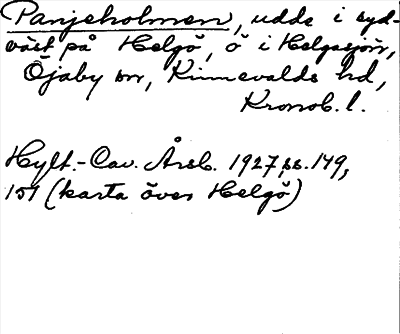 Panjeholmen, udde i syd-
väst på Helgö, ö i Helgasjön,
Öjaby sn, Kinnevalds hd,
Kronob. l.
Hylt.-Cav. Årsb. 1927, ss. 149,
151 (karta över Helgö)